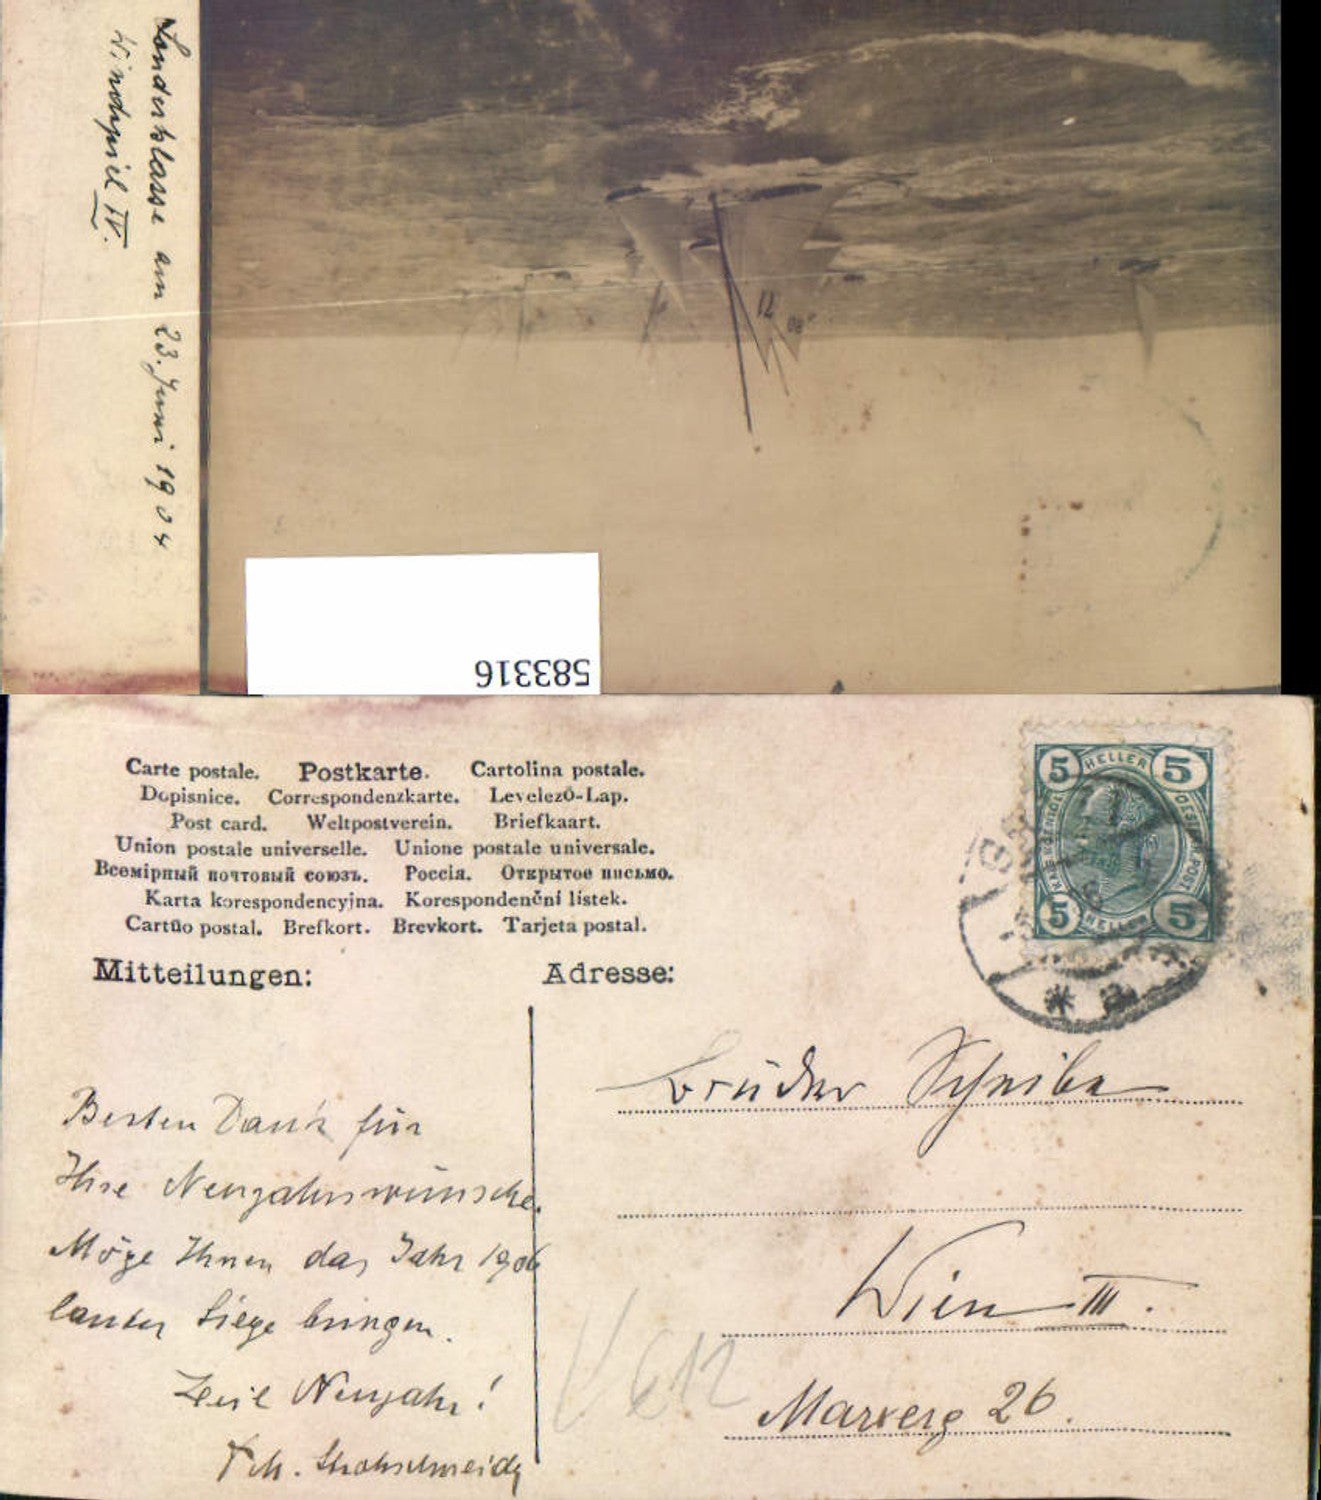 Sonderklasse am 23. Juni 1904
Windspiel IV.
17
583316
Carte postale. Postkarte. Cartolina postale.
Dopisnice. Correspondenzkarte. Levelező-Lap.
Post card. Weltpostverein. Briefkaart.
Union postale universelle. Unione postale universale.
Всемірный почтовый союзъ. Россія. Открытое письмо.
Karta korespondencyjna. Korespondenční lístek.
Cartŭo postal. Brefkort. Brevkort. Tarjeta postal.
Mitteilungen: Adresse:
5 HELLER 5
5 HELLER 5
Besten Dank für
Ihre Neujahrswünsche.
Möge Ihnen das Jahr 1906
lauter Siege bringen.
Heil Neujahr!
Brüder
Wien III.
26.
612